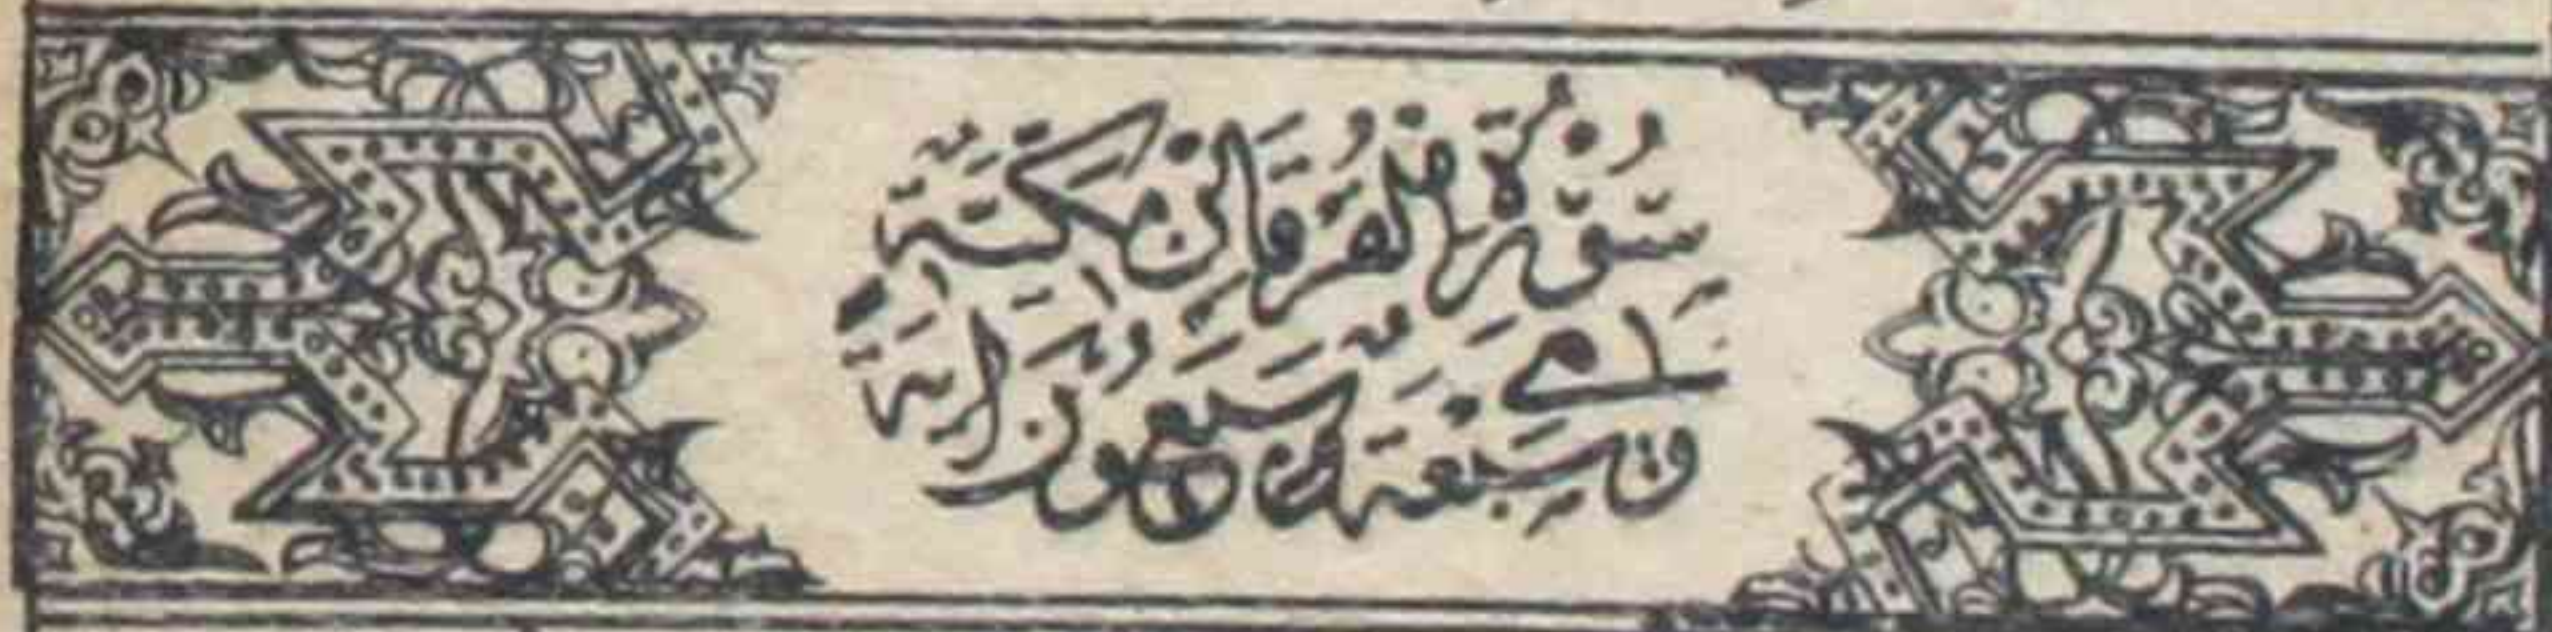 سُوْرَةُ الْفُرْقَانِ مَكِّيَّةٌ
وَهِيَ سَبْعَةٌ وَسَبْعُوْنَ اٰيَةً